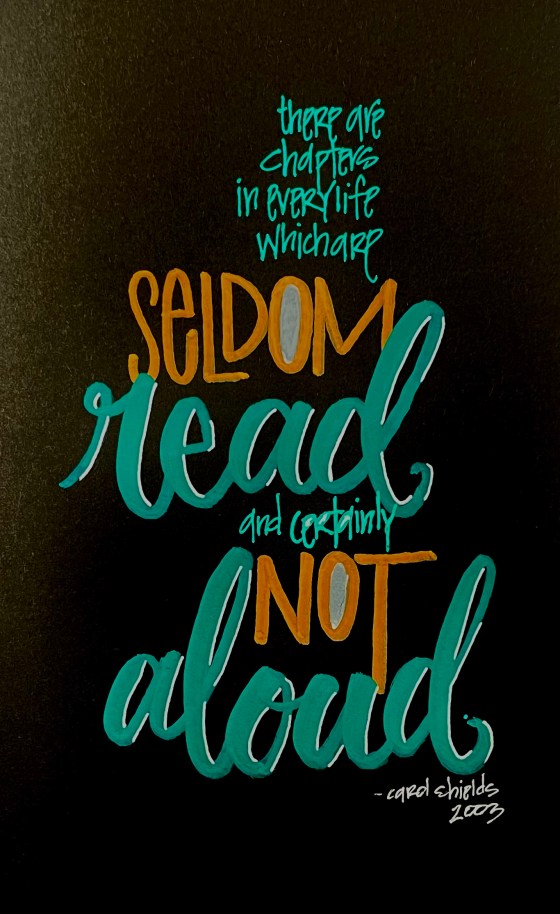 there are
chapters
in every life
which are
SELDOM
read
and certainly
NOT
aloud
- carol shields
2003